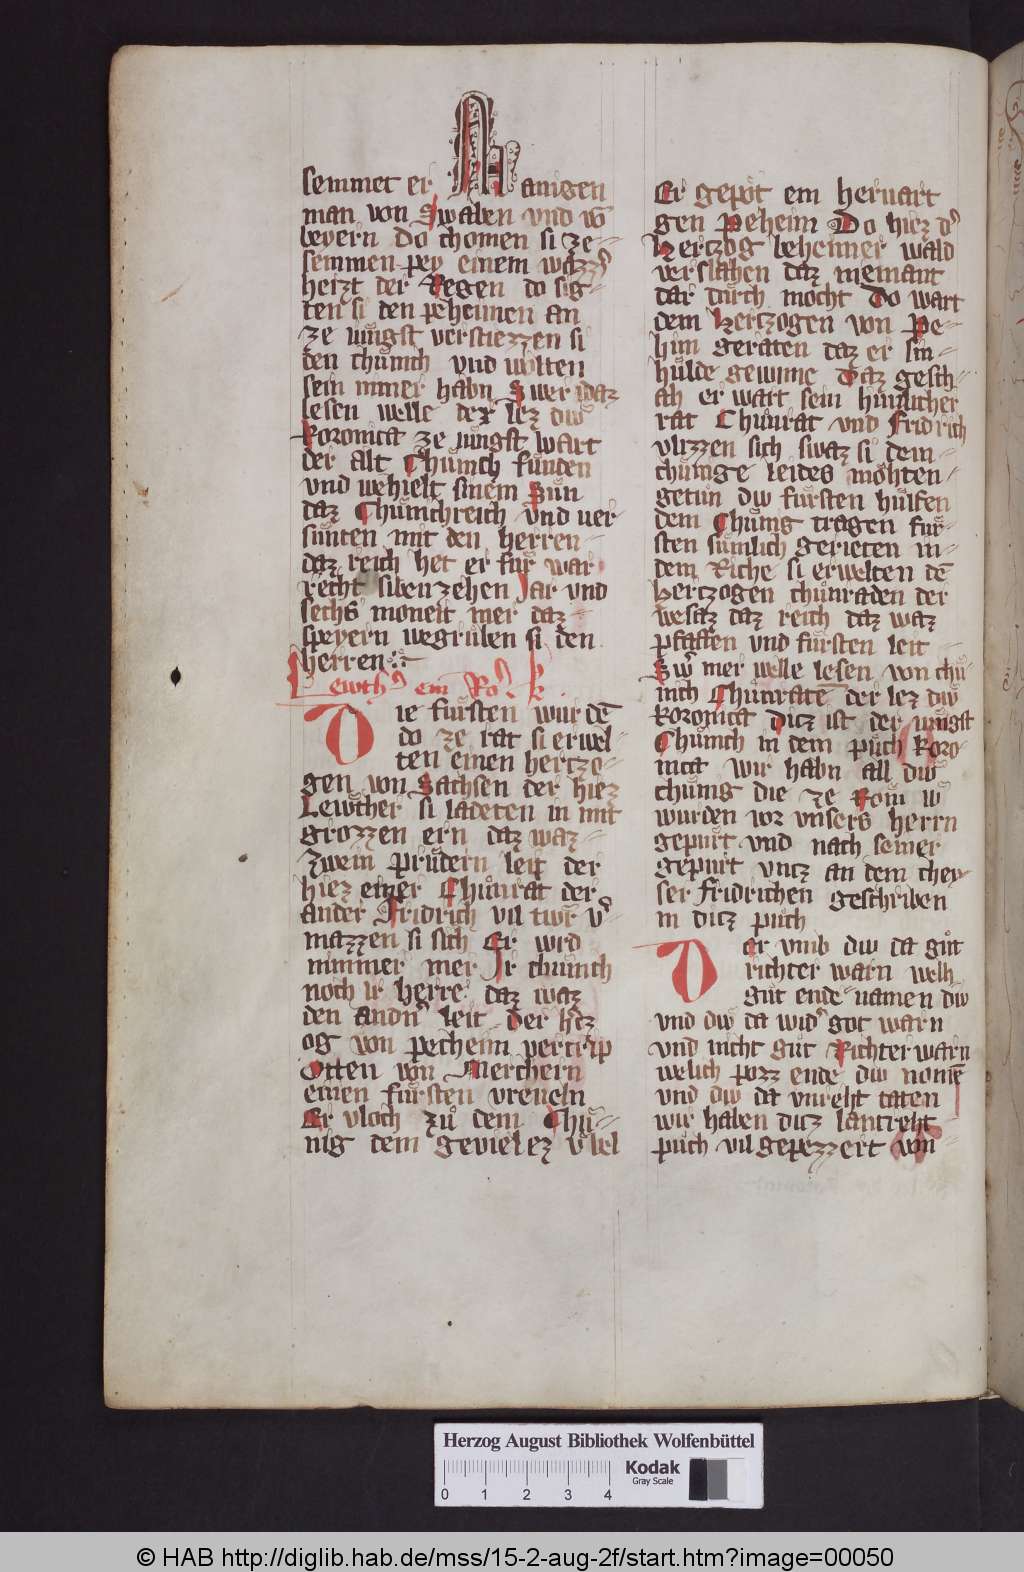 semmet er Manigen
man von Swaben vnd vō
beyern Do chomen si ze-
semmen pey einem wazz͛
heizt der Regen do sig-
ten si den peheimen an
ze jüngst verstiezzen si
den chünich vnd wolten
sein nimer habn Swer waz
lesen welle der lez diw
Koronica ze jungst wart
der alt Chünich funden
vnd wehielt sinem Sun
daz Chünichreich vnd uer-
sünten mit den herren
daz reich het er für war
recht sibenzehen Jar vnd
sechs moneit mer daz
speyern wegrüben si den
herren
Lewth͛ ein Ro͛ k
Die fürsten wurdē
do ze rat si erwel-
ten einen hertzo-
gen von Sachsen der hiez
Lewther si ladeten in mit
grozzen ern daz waz
zwein prüdern leit der
hiez einer Chunrat der
ander Fridrich vil tiwr v͛-
mazzen si sich Er wird
nimmer mer Ir chünich
noch ir herre daz waz
den andn͛ leit Der h͛tz
og von pecheim
Otten von Merchern
einen fürsten vreueln
Er vloch zu dem Chü-
nig dem geviel ez vbel
Er gepot ein heruart
gen Peheim Do hiez d͛
Hertzog beheimer wald
verslahen daz niemant
dar durch mocht Do wart
dem Hertzogen von Pe-
him geraten daz er sin
hulde gewinne Daz gesch-
ah er wart sein heimlicher
rat Chunrat vnd Fridrich
vlizzen sich swaz si dem
chünige leides möhten
getün diw fürsten hülfen
dem Chünig tragen für-
sten sümlich gerieten in
dem Riche si erwelten dē
Hertzogen chünraden der
wesaz daz reich daz waz
pfaffen vnd fürsten leit
Sw͛ mer welle lesen von chü
nich Chunratē der lez diw
Koronica Ditz ist der jungst
Chünich in dem püch Koro-
nica wir habn all diw
chünig die ze Rom iv
wurden vor vnsers herrn
gepürt vnd nach seiner
gepürt vntz an dem chey-
ser Fridrichen geschriben
in ditz püch
Der vmb diw da güt
richter warn welh
güt ende namen diw
vnd diw da wid͛ got warn
vnd nicht güt Richter warn
welich pozz ende diw nomē
vnd diw da vnreht taten
wir haben ditz lantreht
püch vil gepezzert von
Herzog August Bibliothek Wolfenbüttel
Kodak
Gray Scale
0 1 2 3 4
© HAB http://diglib.hab.de/mss/15-2-aug-2f/start.htm?image=00050